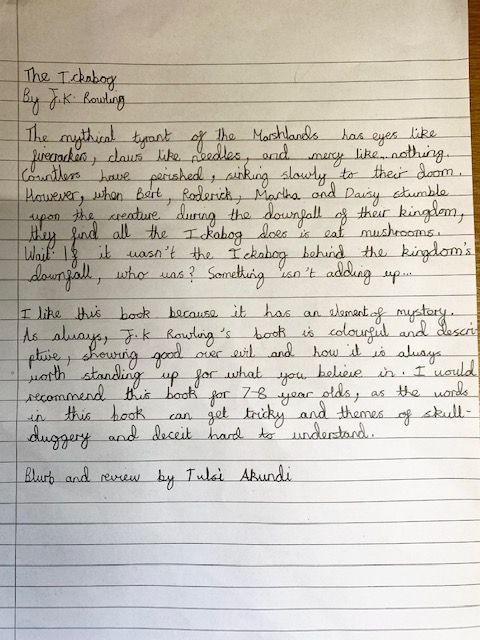 The Ickabog
By J.K. Rowling
The mythical tyrant of the Marshlands has eyes like
firecrackers, claws like needles, and mercy like... nothing.
Countless have perished, sinking slowly to their doom.
However, when Bert, Roderick, Martha and Daisy stumble
upon the creature during the downfall of their kingdom,
they find all the Ickabog does is eat mushrooms.
Wait. If it wasn't the Ickabog behind the kingdom's
downfall, who was? Something isn't adding up...
I like this book because it has an element of mystery.
As always, J.K Rowling's book is colourful and descri-
ptive, showing good over evil and how it is always
worth standing up for what you believe in. I would
recommend this book for 7-8 year olds, as the words
in this book can get tricky and themes of skull-
duggery and deceit hard to understand.
Blurb and review by Tulsi Akundi